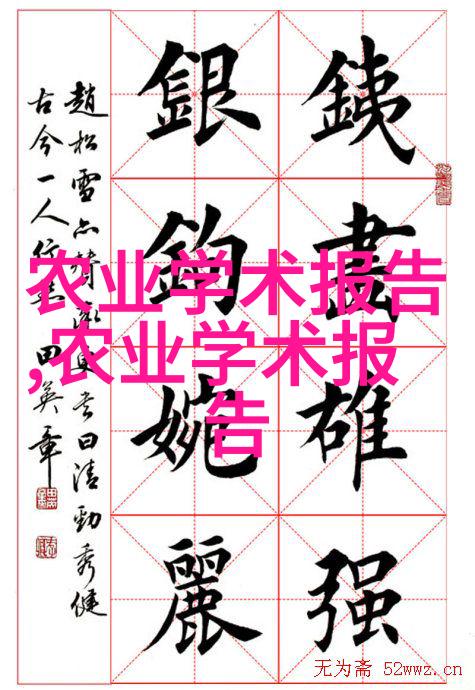 銕畫雄强
銀鈎婉麗
趙松雪曰清勁秀健
古今一人 田英章
农业学术报告
,农业学术报
告
无为斋 52wwz.cn